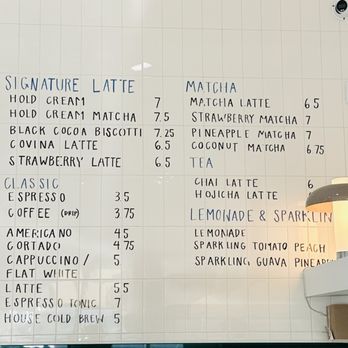 SIGNATURE LATTE
HOLD CREAM 7
HOLD CREAM MATCHA 7.5
BLACK COCOA BISCOTTI 7.25
COVINA LATTE 6.5
STRAWBERRY LATTE 6.5
CLASSIC
ESPRESSO 3.5
COFFEE (DRIP) 3.75
AMERICANO 4.5
CORTADO 4.75
CAPPUCCINO / 5
FLAT WHITE
LATTE 5.5
ESPRESSO TONIC 7
HOUSE COLD BREW 5
MATCHA
MATCHA LATTE 6.5
STRAWBERRY MATCHA 7
PINEAPPLE MATCHA 7
COCONUT MATCHA 6.75
TEA
CHAI LATTE 6
HOJICHA LATTE
LEMONADE & SPARKLIN
LEMONADE
SPARKLING TOMATO PEACH
SPARKLING GUAVA PINEAP